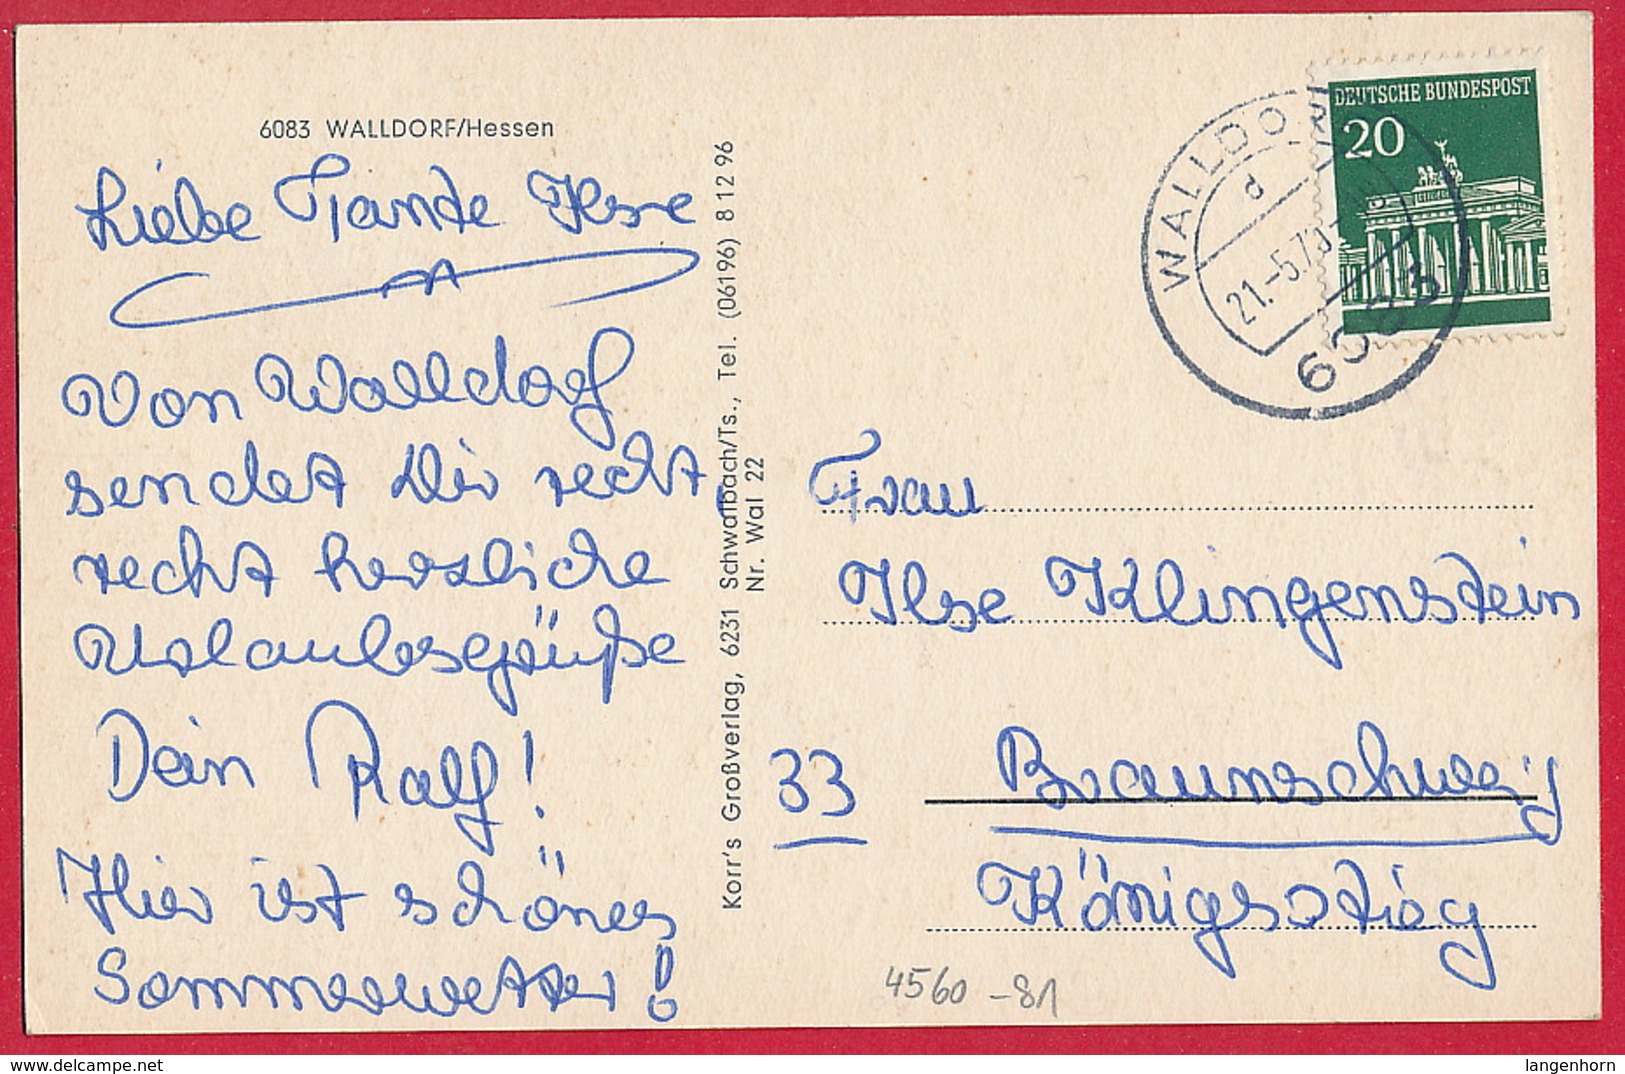 6083 WALLDORF/Hessen
Liebe Tante Ilse
Von Walldorf
sendet Dir recht,
recht herzliche
Urlaubsgrüße
Dein Ralf!
Hier ist schönes
Sommerwetter!
Korr's Großverlag, 6231 Schwalbach/Ts., Tel. (06196) 8 12 96
Nr. Wal 22
DEUTSCHE BUNDESPOST
20
WALLDORF
d
21.-5.70
6083
Frau
Ilse Klingenstein
33 Braunschweig
Königsstieg
4560 -81
delcampe.net
langenhorn